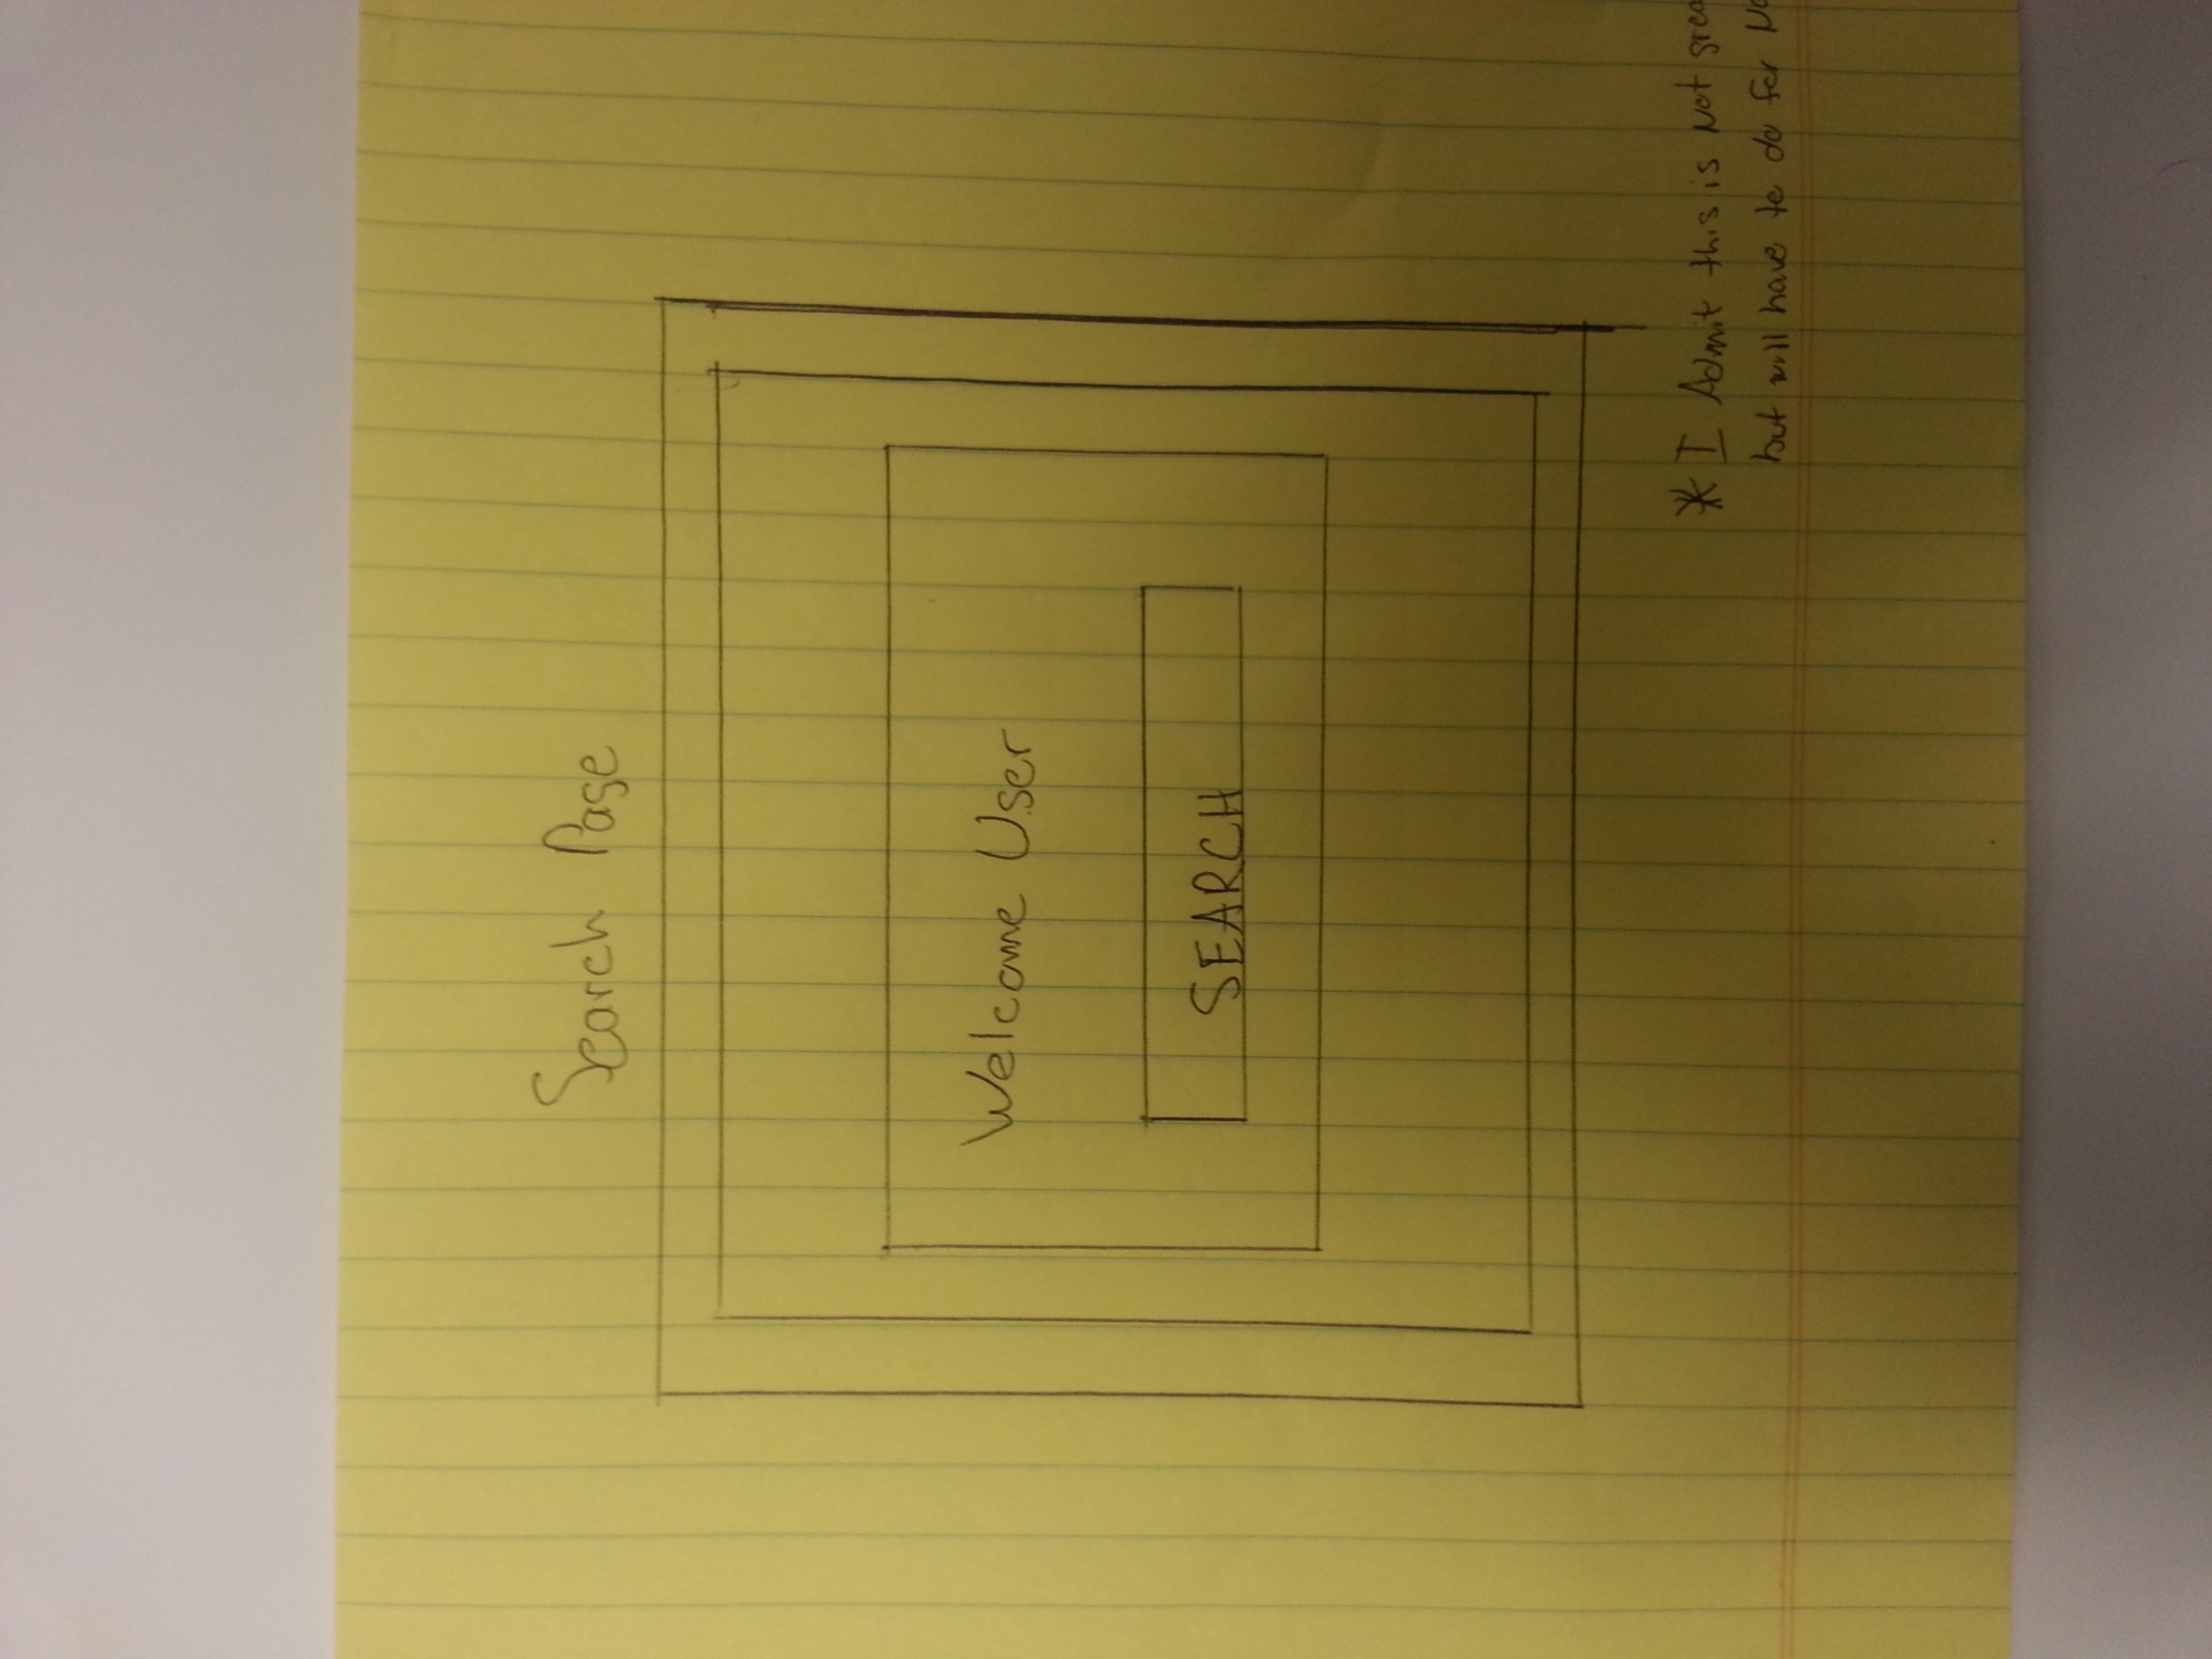 Search Page
Welcome User
SEARCH
* I Admit this is Not
but will have to do for